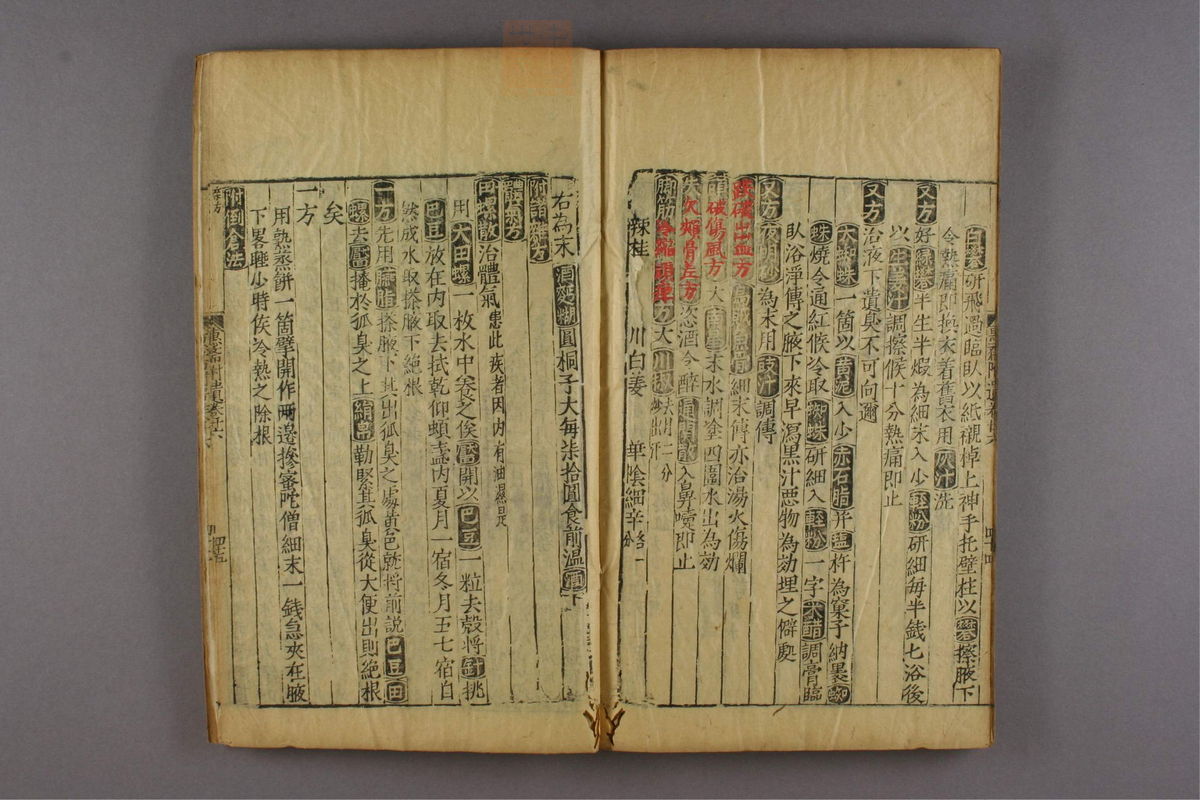 白礬研飛過臨臥以紙襯棹上神手托壁柱以礬擦腋下
令熱痛即換衣着舊衣用灰汁洗
又方
好礬半生半煆為細末入少輕粉研細每半錢七浴後
以生姜汁調擦候十分熱痛即止
又方
治液下遺臭不可向邇
大蜘蛛一箇以黃泥入少赤石脂并塩杵為窠子納裏蜘
蛛燒令通紅候冷取蜘蛛研細入輕粉一字米醋調膏臨
臥浴淨傅之腋下來早瀉黑汁惡物為効埋之僻處
又方
為末用豉汁調傅
磕出血方
細末傅亦治湯火傷爛
破傷風方
末水調塗四圍水出為効
失欠頰骨左方
恣酒令醉
入鼻嚏即止
脚筋
方
大川椒
出汗二分
辣桂
川白姜
華陰細辛各一分
右為末酒麪糊圓桐子大每柒拾圓食前溫酒下
附諸雜方
體氣方
田螺散治體氣患此疾者因内有油濕是
用大田螺一枚水中養之俟靨開以巴豆一粒去殼將針挑
巴豆放在内取去拭乾仰頓盞内夏月一宿冬月五七宿自
然成水取搽腋下絕根
一方先用搽腋下其出狐臭之處黃色就將前説巴豆田
螺去靨掩於狐臭之上絹帛勒緊其狐臭從大便出則絕根
矣
一方
用熟蒸餅一箇擘開作兩邊摻蜜陀僧細末一錢急夾在腋
下畧睡少時俟冷熱之除根
附倒倉法